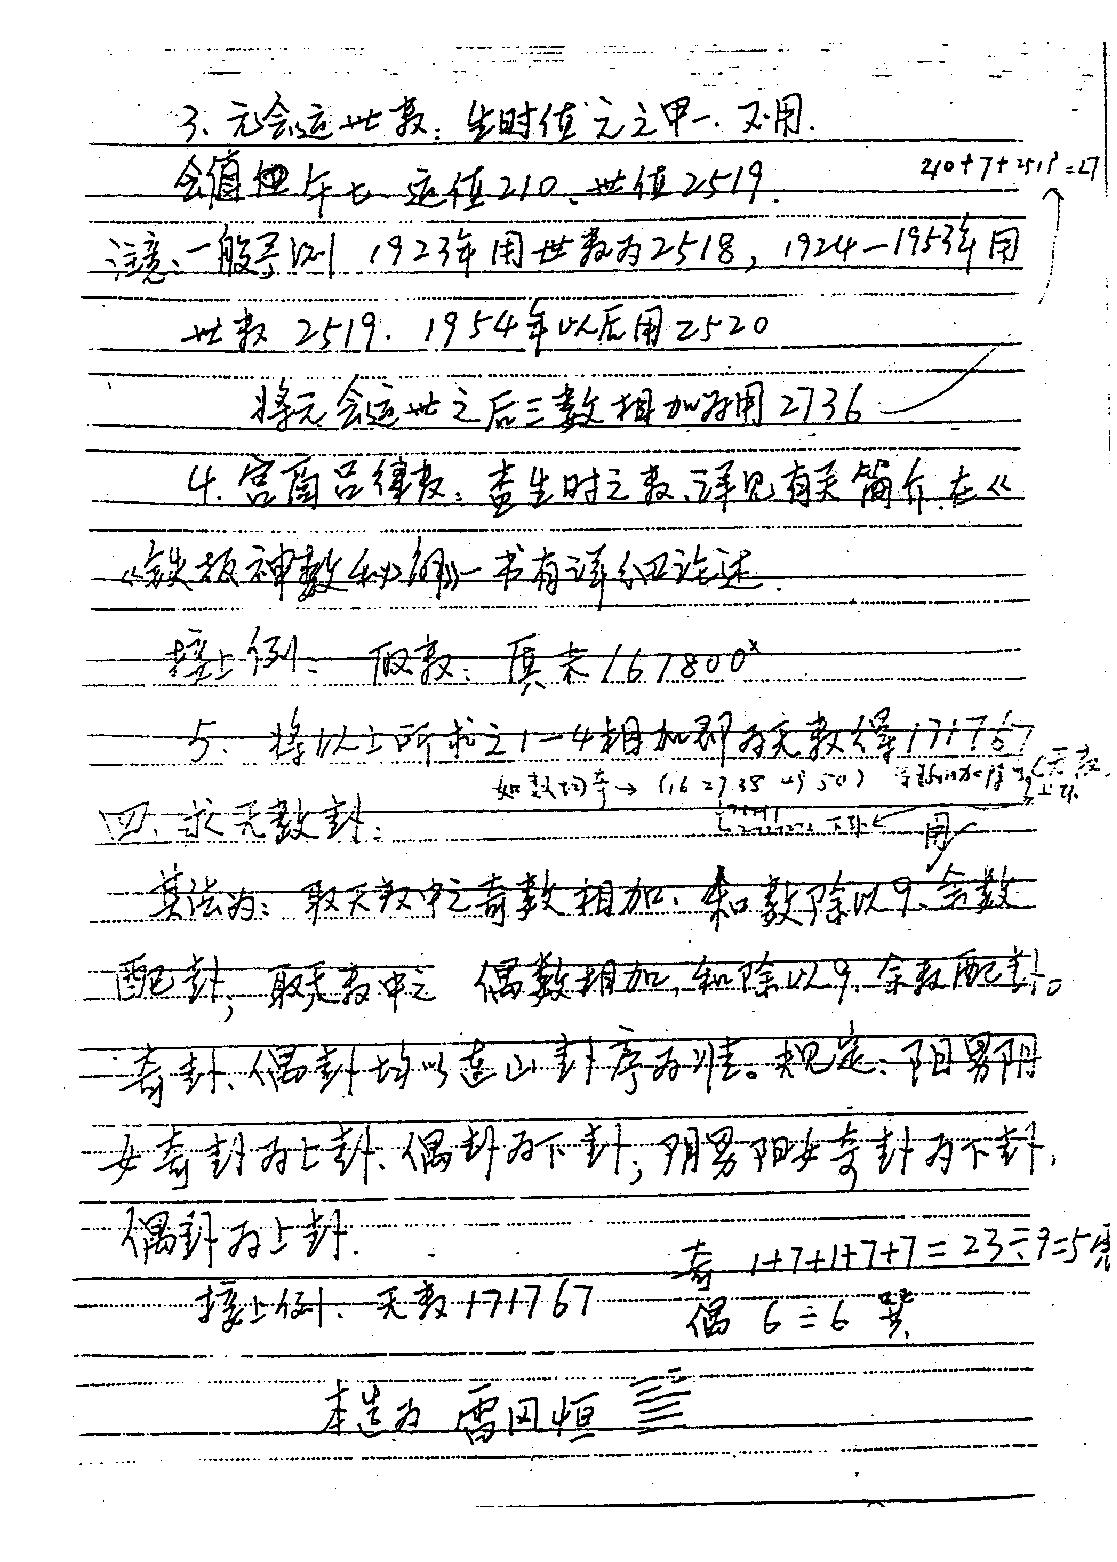 3、元会运世数：生时值元之甲一、不用.
会值 午七 运值210、世值2519.
210+7+2519=27
注意：一般 1923年用世数为2518，1924—1953年用
世数 2519. 1954年以后用2520
将元会运世之后三数相加为用2736
4. 宫商吕律数：查生时之数、详见有关简介.在《
《铁板神数秘 》一书有详细论述.
接上例： 取数： 167800
5. 将以上所求之1—4相加即为天数得171767
如数均奇→ (16 2738 4950)
四、求天数卦：
用
其法为：取天数中之奇数相加、和数除以9、余数
配卦，取天数中之 偶数相加，和除以9，余数配卦。
奇卦、偶卦均以连山卦序为准。规定：阳男阴
女奇卦为上卦、偶卦为下卦，阴男阳女奇卦为下卦，
偶卦为上卦.
奇 1+7+1+7+7=23÷9=5
接上例、天数171767
偶 6 = 6 巽
本造为 雷风恒